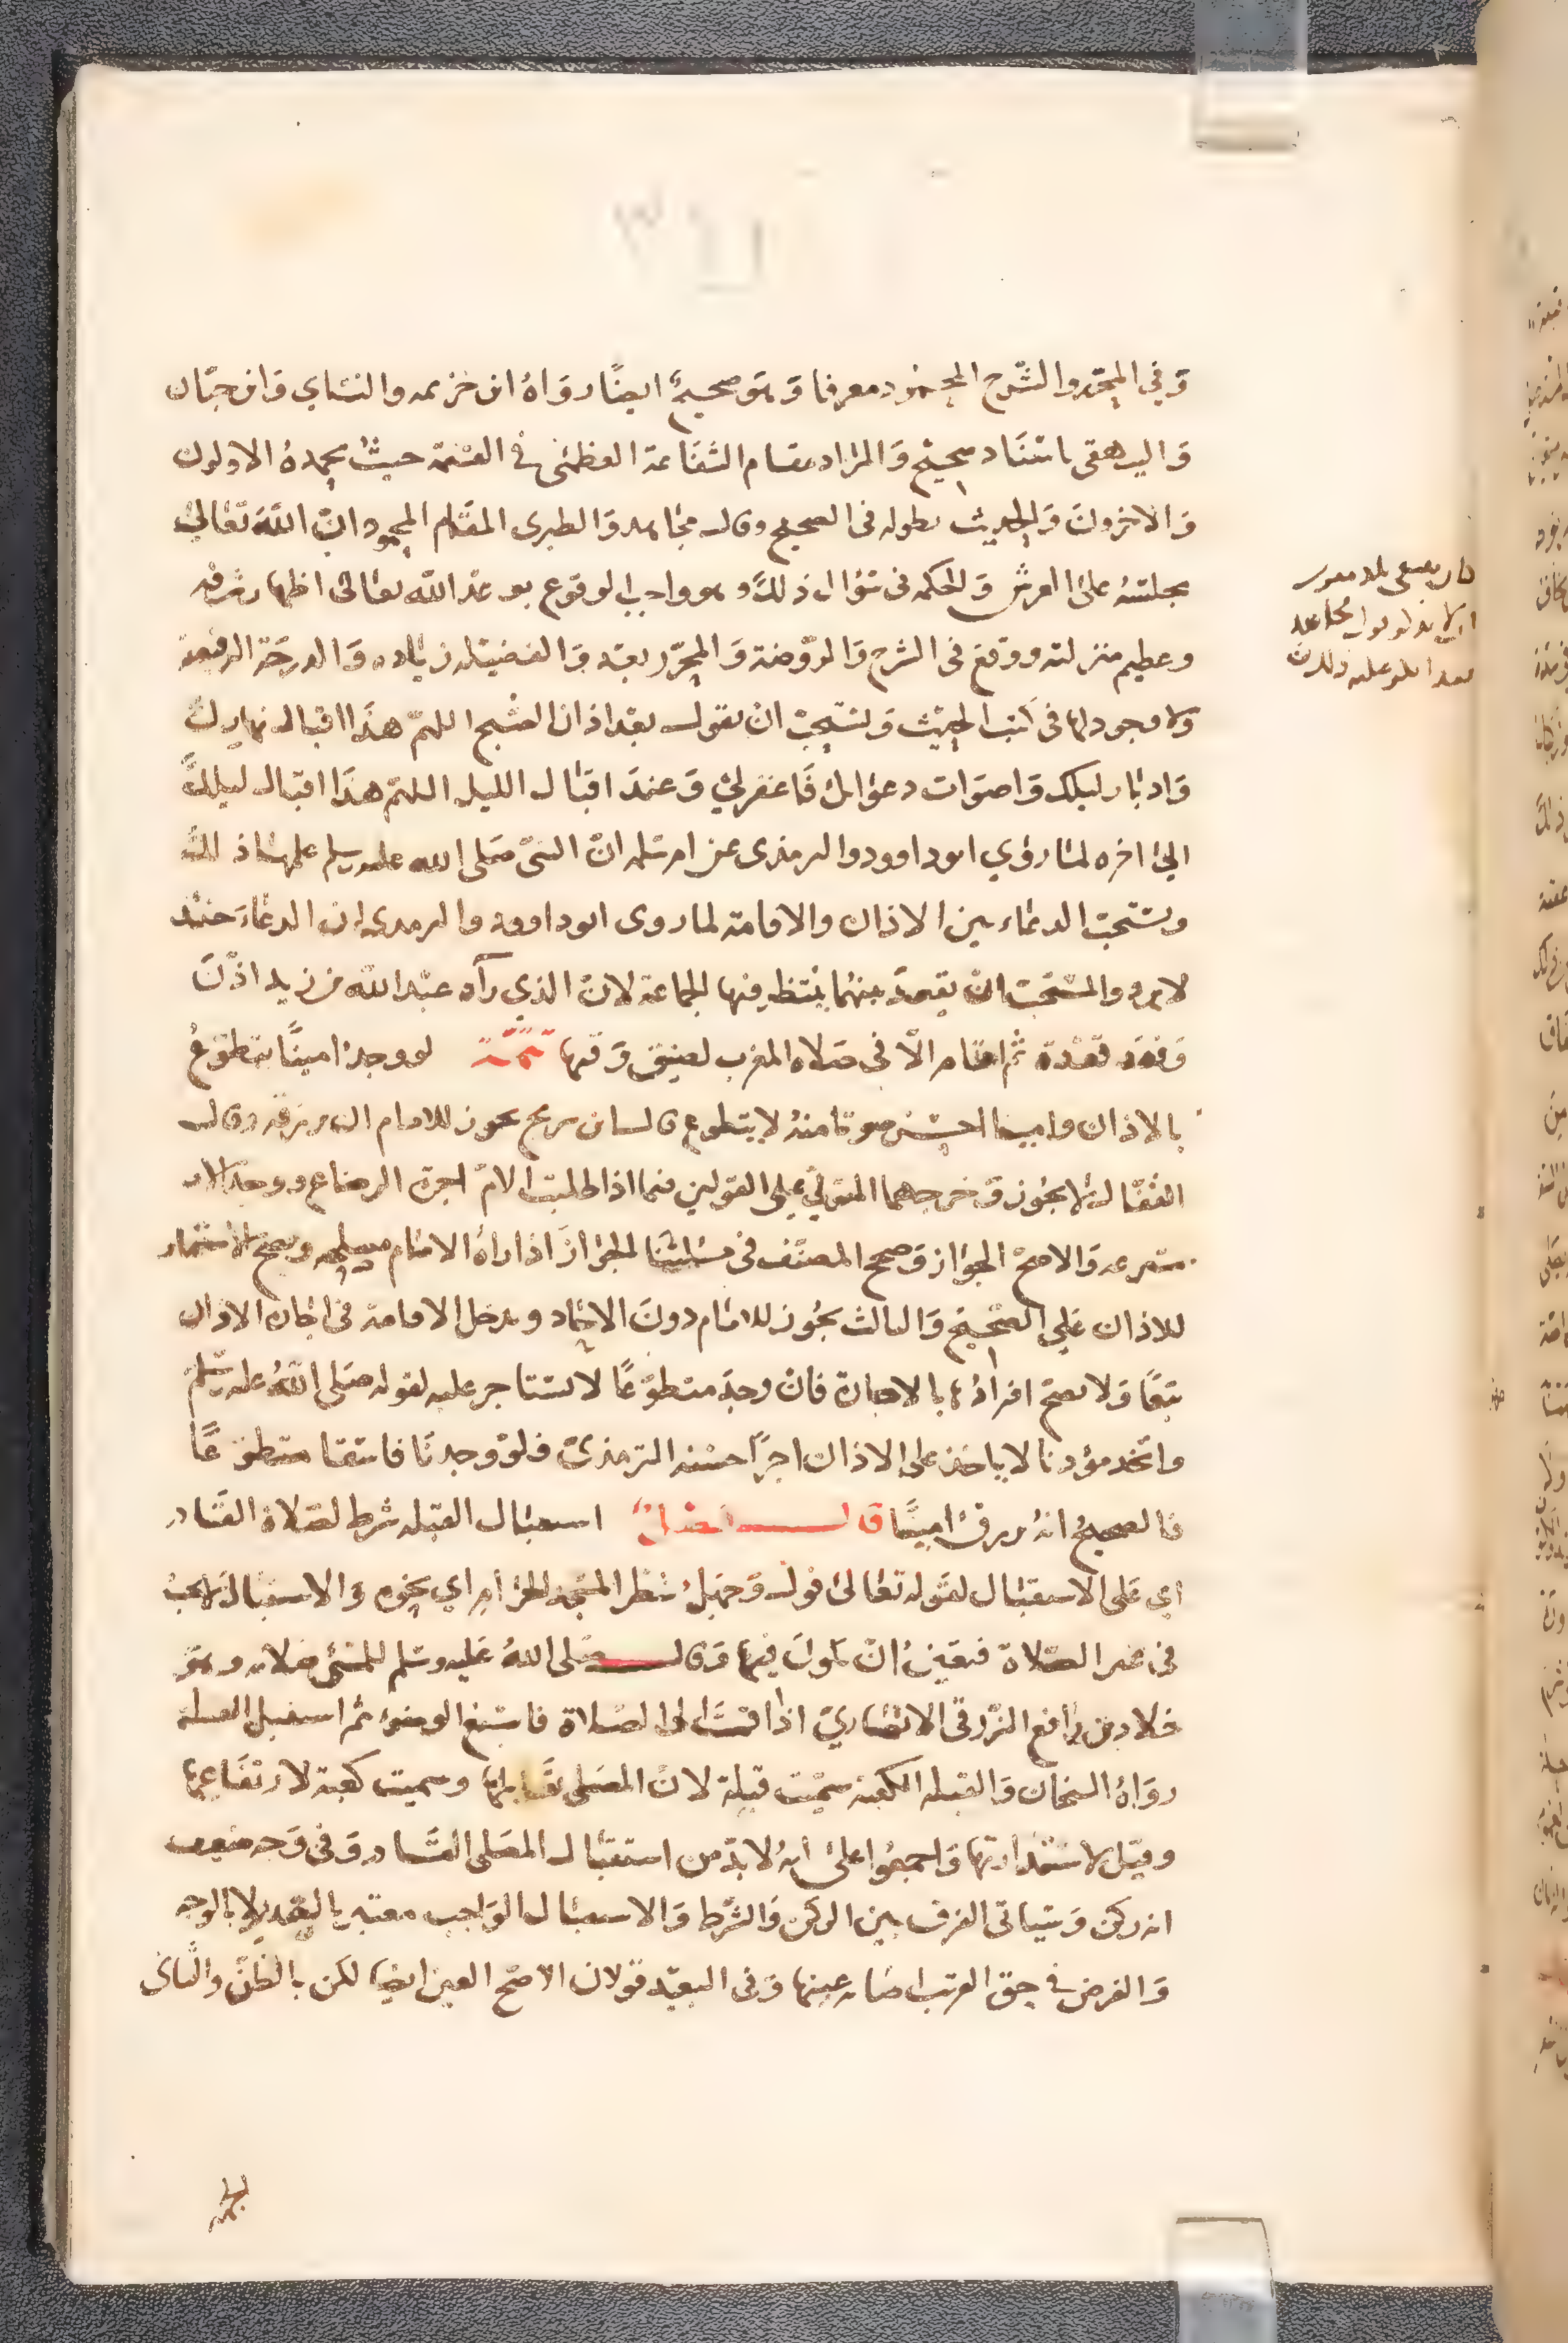 وفي المحرر والشرح المحمود معرفا وهو صحيح ايضا رواه ابن خزيمه والنساي وابن حبان
والبيهقي باسناد صحيح والمراد مقام الشفاعة العظمى في القيمة حيث يحمده الاولون
والاخرون والحديث بطوله في الصحيح وقال مجاهد والطبري المقام المحمود ان الله تعالى
يجلسه على العرش والحكمه في سؤال ذلك وهو واجب الوقوع بوعد الله تعالى اظهار شرفه
وعظيم منزلته ووقع في الشرح والروضة والمحرر بعد والفضيله زياده والدرجة الرفيعة
ولا وجود لها في كتب الحديث ويستحب ان يقول بعد اذان الصبح اللهم هذا اقبال نهارك
وادبار ليلك واصوات دعواتك فاغفر لي وعند اقبال الليل اللهم هذا اقبال ليلك
الى اخره لما روي ابوداوود والترمذي عن ام سلمه ان النبي صلى الله عليه وسلم علمها ذلك
ويستحب الدعاء بين الاذان والاقامة لما روى ابوداوود والترمذي ان الدعاء حينئذ
لا يرد والمستحب ان يقعد بينهما ينتظر فيها الجماعة لان الذي رآه عبد الله بن زيد اذن
وقعد قعدة ثم اقام الا في صلاه المغرب لضيق وقتها تتمة لو وجد امينا يتطوع
بالاذان وامينا احسن صوتا منه لا يتطوع قال ابن سريج يجوز للامام ان يرزقه وقال
القفال لا يجوز وخرجهما المتولي على القولين فيما اذا طلبت الام اجرة الرضاع ووجد الاب
متبرعه والاصح الجواز وصحح المصنف في مسئلتنا الجواز اذا راه الامام مصلحه ويصح الاستئجار
للاذان على الصحيح والثالث يجوز للامام دون الاحاد ويدخل الاقامة في اجارة الاذان
تبعا ولا يصح افرادها بالاجارة فان وجد متطوعا لا يستاجر عليه لقوله صلى الله عليه وسلم
واتخد مؤذنا لا ياخذ على الاذان اجرا حسنه الترمذي فلو وجدنا فاسقا متطوعا
فالصحيح انه يرزق امينا قال فصل استقبال القبله شرط لصلاة القادر
اي على الاستقبال لقوله تعالى فول وجهك شطر المسجد الحرام اي نحوه والاستقبال لا يجب
في غير الصلاة فتعين ان يكون فيها وقال صلى الله عليه وسلم للمسئ صلاته وهو
خلاد بن رافع الزرقي الانصاري اذا قمت الى الصلاة فاسبغ الوضوء ثم استقبل القبلة
رواه الشيخان والقبله الكعبة سميت قبلة لان المصلي يقابلها وسميت كعبة لارتفاعها
وقيل لاستدارتها واجمعوا على انه لا بد من استقبال المصلي القادر وفي وجه ضعيف
انه ركن وسياتي الفرق بين الركن والشرط والاستقبال الواجب معتبر بالصدر لا بالوجه
والفرض في حق القريب اصابة عينها وفي البعيد قولان الاصح العين ايضا لكن بالظن والثاني